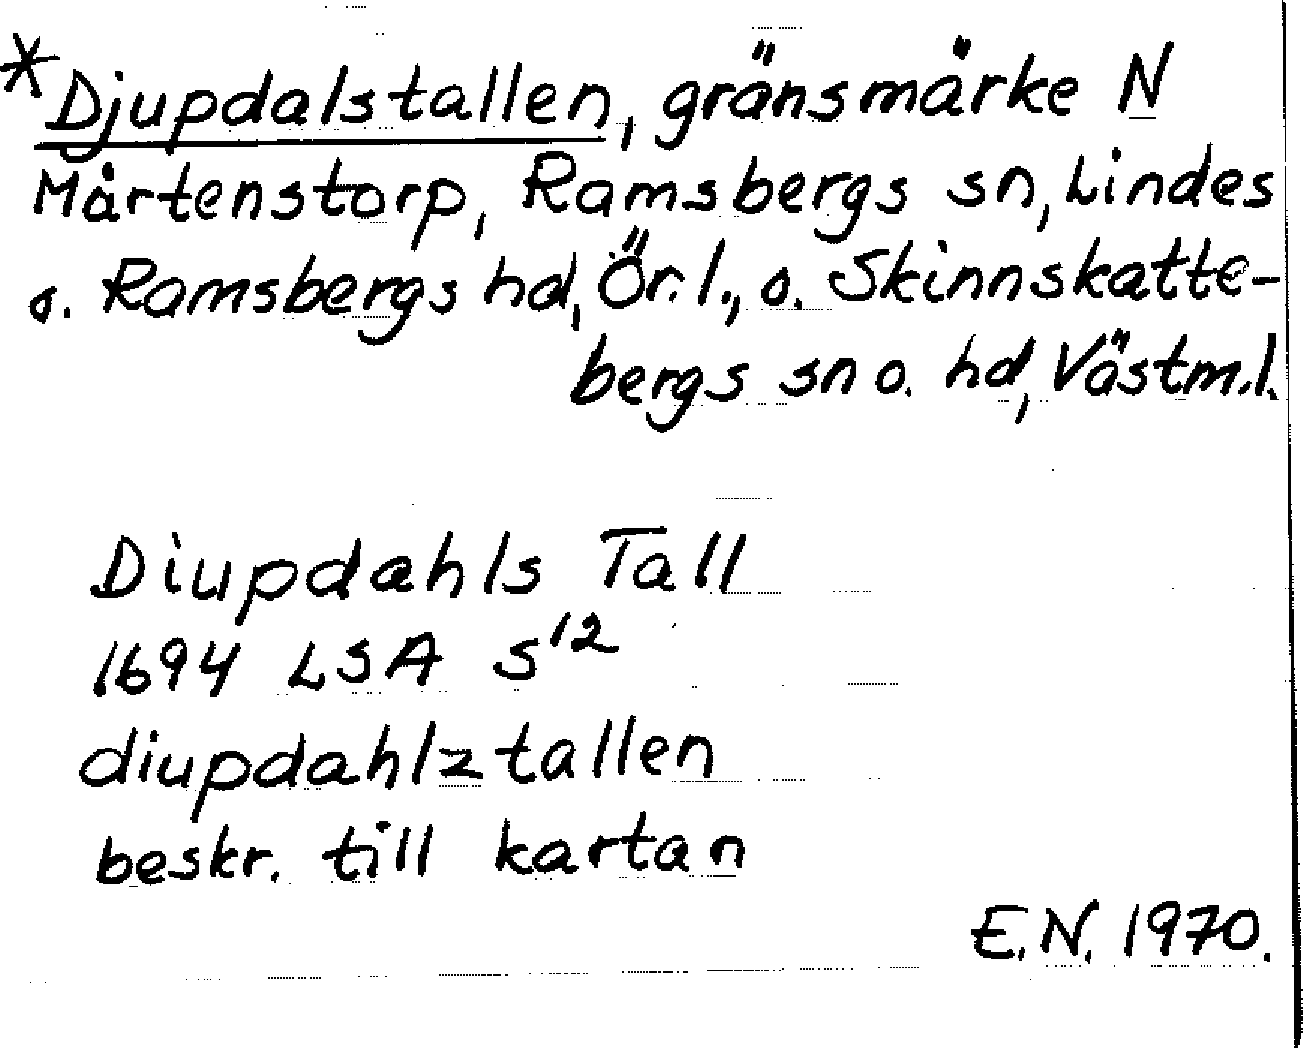 *Djupdalstallen, gränsmärke N
Mårtenstorp, Ramsbergs sn, Lindes
o. Ramsbergs hd, Ör. l., o. Skinnskatte-
bergs sn o. hd, Västm. l.
Diupdahls Tall
1694 LSA S¹²
diupdahlz tallen
beskr. till kartan
E.N. 1970.